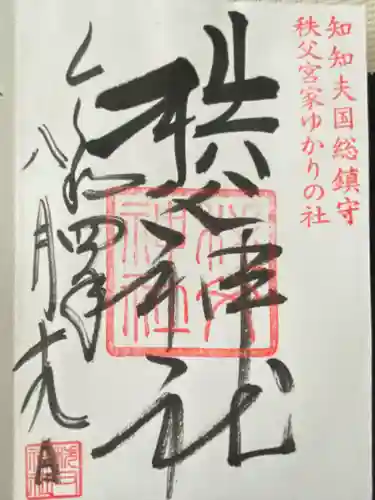 知知夫国総鎮守
秩父宮家ゆかりの社
秩父神社
秩父神社
令和四年
八月
日